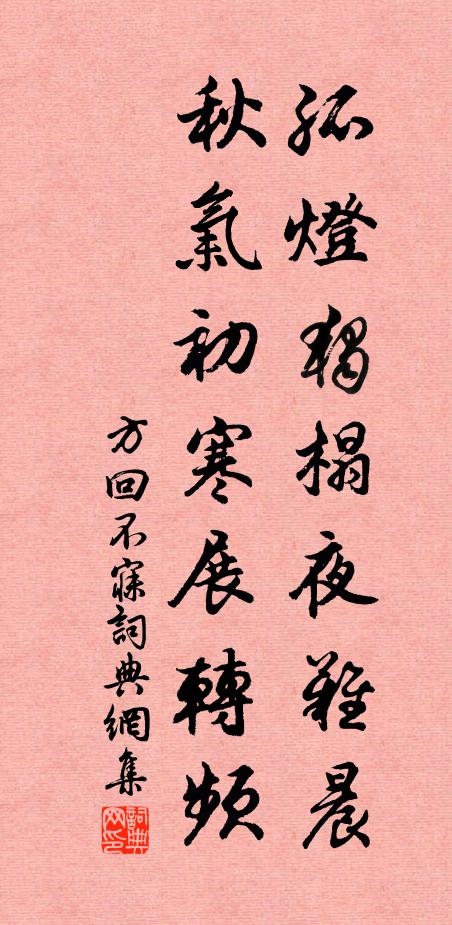 孤燈獨榻夜難晨
秋氣初寒展轉頻
方回不寐詞典網集
詞典网印